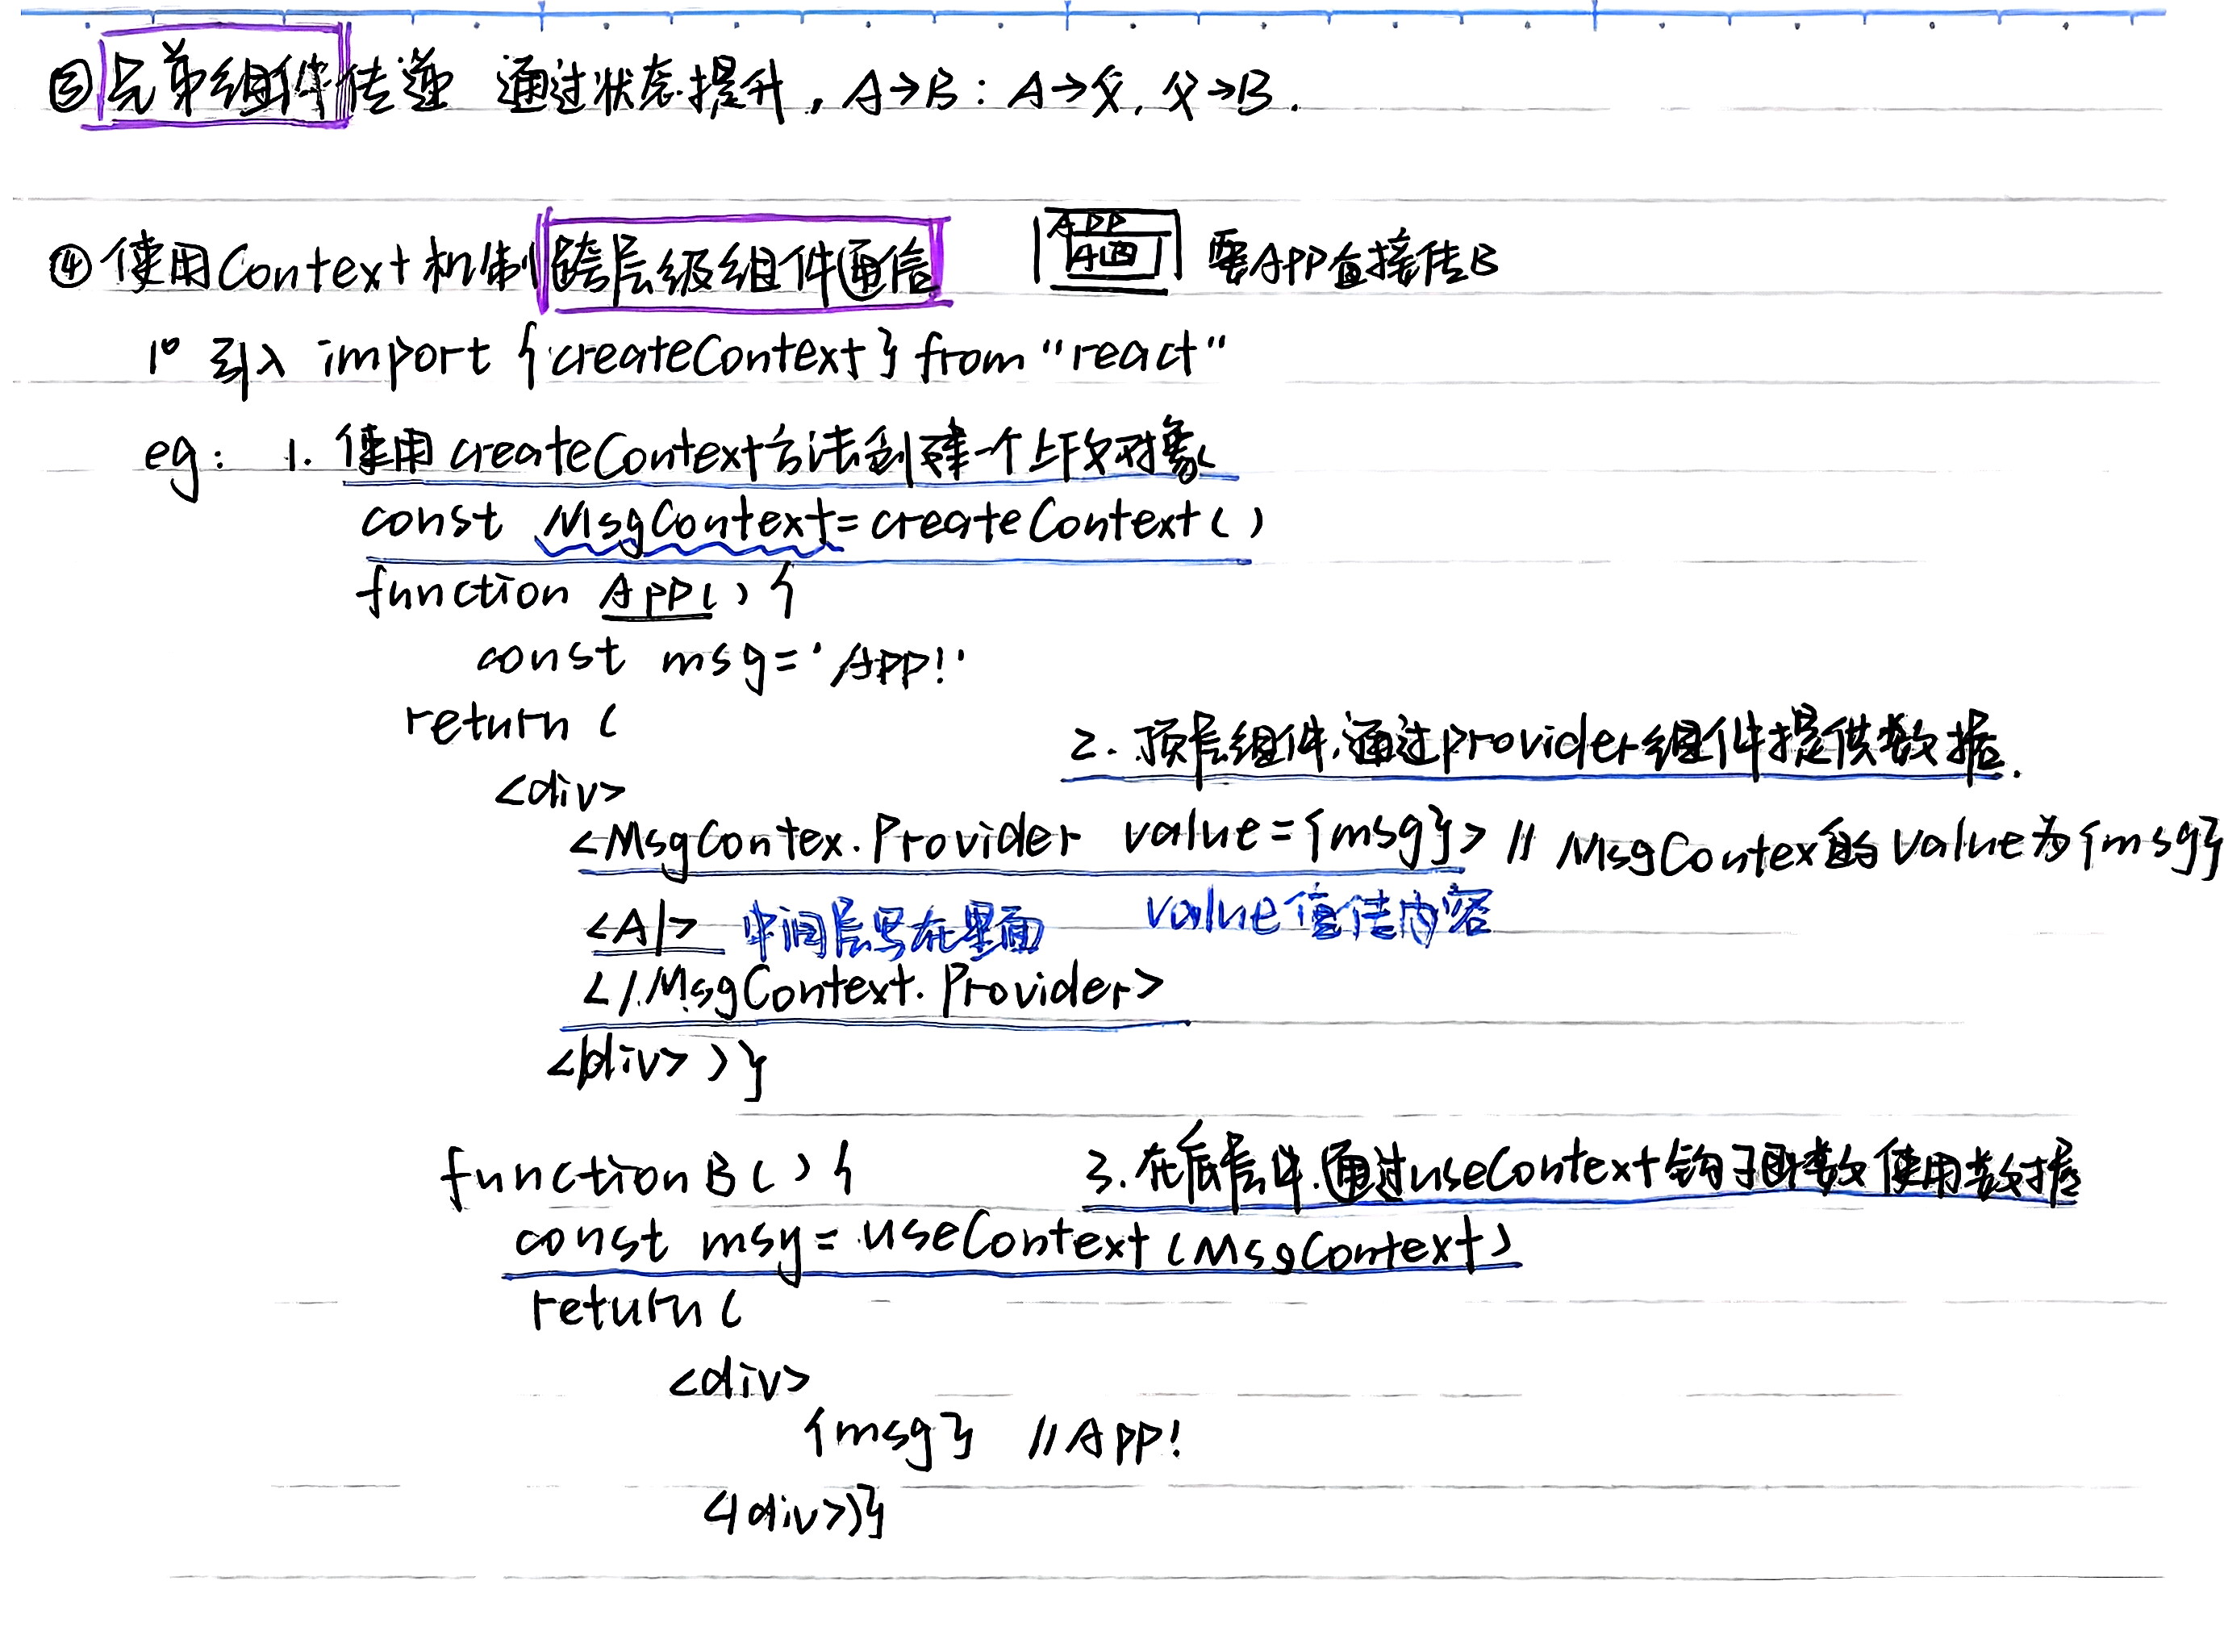 ③兄弟组件传递 通过状态提升，A→B：A→父，父→B.
④使用Context机制跨层级组件通信 APP A B 要APP直接传B
1° 引入 import {createContext} from "react"
eg: 1. 使用createContext方法创建一个上下文对象
const MsgContext=createContext()
function App(){
const msg='App!'
return (
2. 顶层组件.通过provider组件提供数据.
<div>
<MsgContex.Provider value={msg}> // MsgContex的value为{msg}
<A/> 中间层写在里面 value值传内容
</MsgContext.Provider>
</div>)}
function B(){ 3. 在底层件.通过useContext钩子函数使用数据
const msg=useContext(MsgContext)
return(
<div>
{msg} //App!
</div>)}